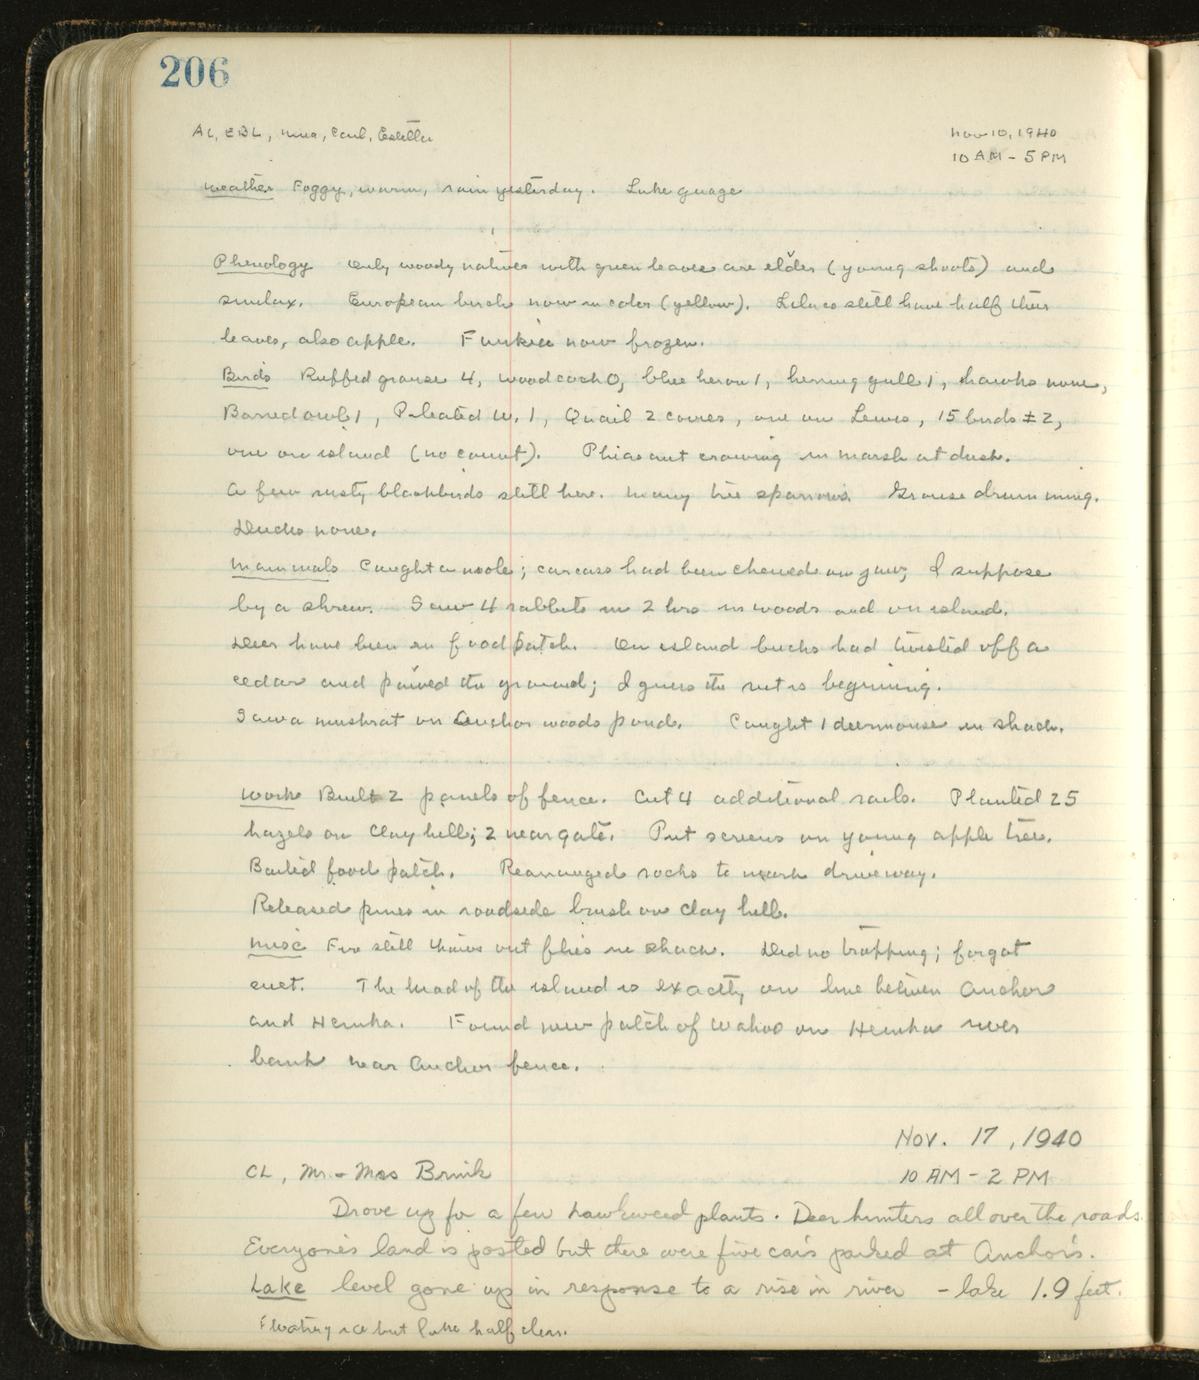 206
AL, EBL, Nina, Carl, Estella
Nov 10, 1940
10 AM - 5 PM
Weather Foggy, warm, rain yesterday. Lake guage
Phenology Only woody natives with green leaves are elder (young shoots) and
smilax. European birch now in color (yellow). Lilacs still have half their
leaves, also apple. Funkia now frozen.
Birds Ruffed grouse 4, woodcock 0, blue heron 1, herring gull 1, hawks none,
Barred owl 1, Pileated W. 1, Quail 2 covies, one on Lewis, 15 birds ± 2,
one on island (no count). Pheasant crowing in marsh at dusk.
A few rusty blackbirds still here. Many tree sparrows. Grouse drumming.
Ducks none.
Mammals Caught a mole; carcass had been chewed on jaw, I suppose
by a shrew. Saw 4 rabbits in 2 hrs in woods and on island.
Deer have been in food patch. On island bucks had twisted off a
cedar and pawed the ground; I guess the rut is beginning.
Saw a muskrat on Anchor woods pond. Caught 1 deermouse in shack.
Work Built 2 panels of fence. Cut 4 additional rails. Planted 25
hazels on Clay hill; 2 near gate. Put screens on young apple trees.
Baited food patch. Rearranged rocks to mark driveway.
Released pines in roadside brush on Clay hill.
Misc Fire still thaws out flies in shack. Did no trapping; forgot
suet. The head of the island is exactly on line between Anchor
and Hemka. Found new patch of wahoo on Hemka river
bank near Anchor fence.
Nov. 17, 1940
CL, Mr. - Mrs Brink
10 AM - 2 PM
Drove up for a few hawkweed plants. Deer hunters all over the roads.
Everyone's land is posted but there were five cars parked at Anchor's.
Lake level gone up in response to a rise in river - lake 1.9 feet.
Floating ice but lake half clear.